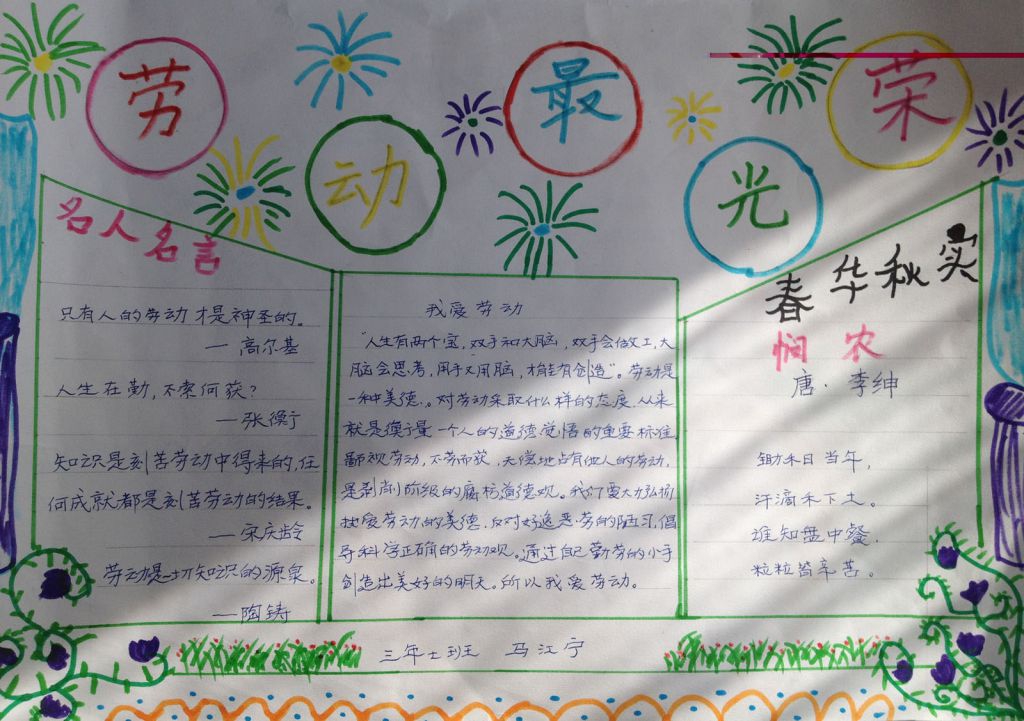 劳动最光荣
名人名言
只有人的劳动才是神圣的。
— 高尔基
人生在勤，不索何获？
— 张衡
知识是刻苦劳动中得来的，任
何成就都是刻苦劳动的结果。
— 宋庆龄
劳动是一切知识的源泉。
— 陶铸
我爱劳动
“人生有两个宝，双手和大脑，双手会做工，大
脑会思考，用手又用脑，才能有创造”。劳动是
一种美德。对劳动采取什么样的态度，从来
就是衡量一个人的道德觉悟的重要标准。
鄙视劳动，不劳而获，无偿地占有他人的劳动，
是剥削阶级的腐朽道德观。我们要大力弘扬
热爱劳动的美德，反对好逸恶劳的陋习，倡
导科学正确的劳动观。通过自己勤劳的小手
创造出美好的明天。所以我爱劳动。
春华秋实
悯农
唐·李绅
锄禾日当午，
汗滴禾下土。
谁知盘中餐，
粒粒皆辛苦。
三年七班 马江宁